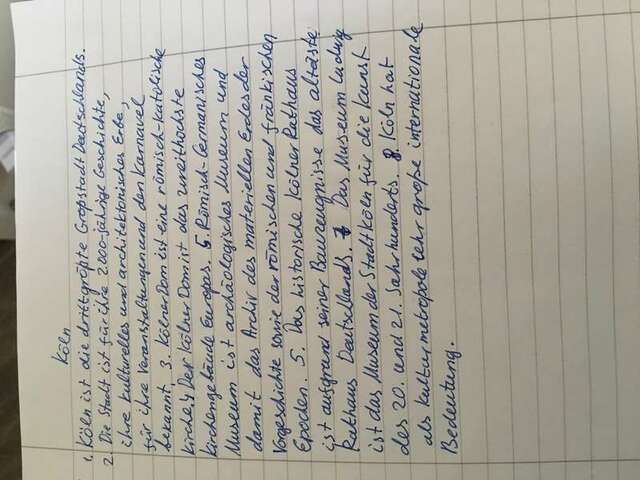 Köln
1. Köln ist die drittgröpte Gropstadt Deutschlands.
2. Die Stadt ist für ihre 2.000-jährige Geschichte,
ihre kulturelles und architektonisches Erbe,
für ihre Veranstaltungen und den Karnaval
bekannt 3. Kölner Dom ist eine römisch-Katolische
Kirche 4 Der Kölner Dom ist das zweithöchste
Kirchengebäude Europas. 5 Römisch-Germanisches
Museum ist archäologisches Museum und
damit das Archiv des materiellen Erdes der
Vorgeschichte sowie der römischen und fränkischen
Epochen. 5. Das historische Kölner Rathaus
ist aufgrund seiner Bauzeugnisse das altäste
Rathaus Deutschlands. 7 Das Museum Ludwig
ist das Museum der Stadt Köln für die Kunst
des 20. und 21. Jahrhunderts. 8 Köln hat
als Kulturmetropole sehr große internationale
Bedeutung.